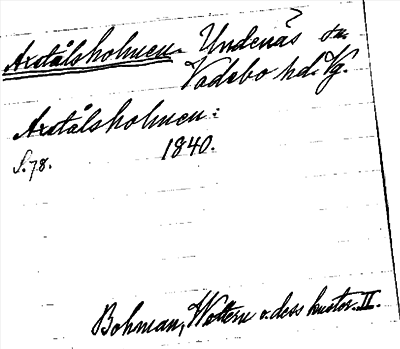 Axstålsholmen. Undenäs sn.
Vadsbo hd. Vg.
Axstålsholmen:
S. 78. 1840.
Bohman, Wettern o. dess kuster. II.